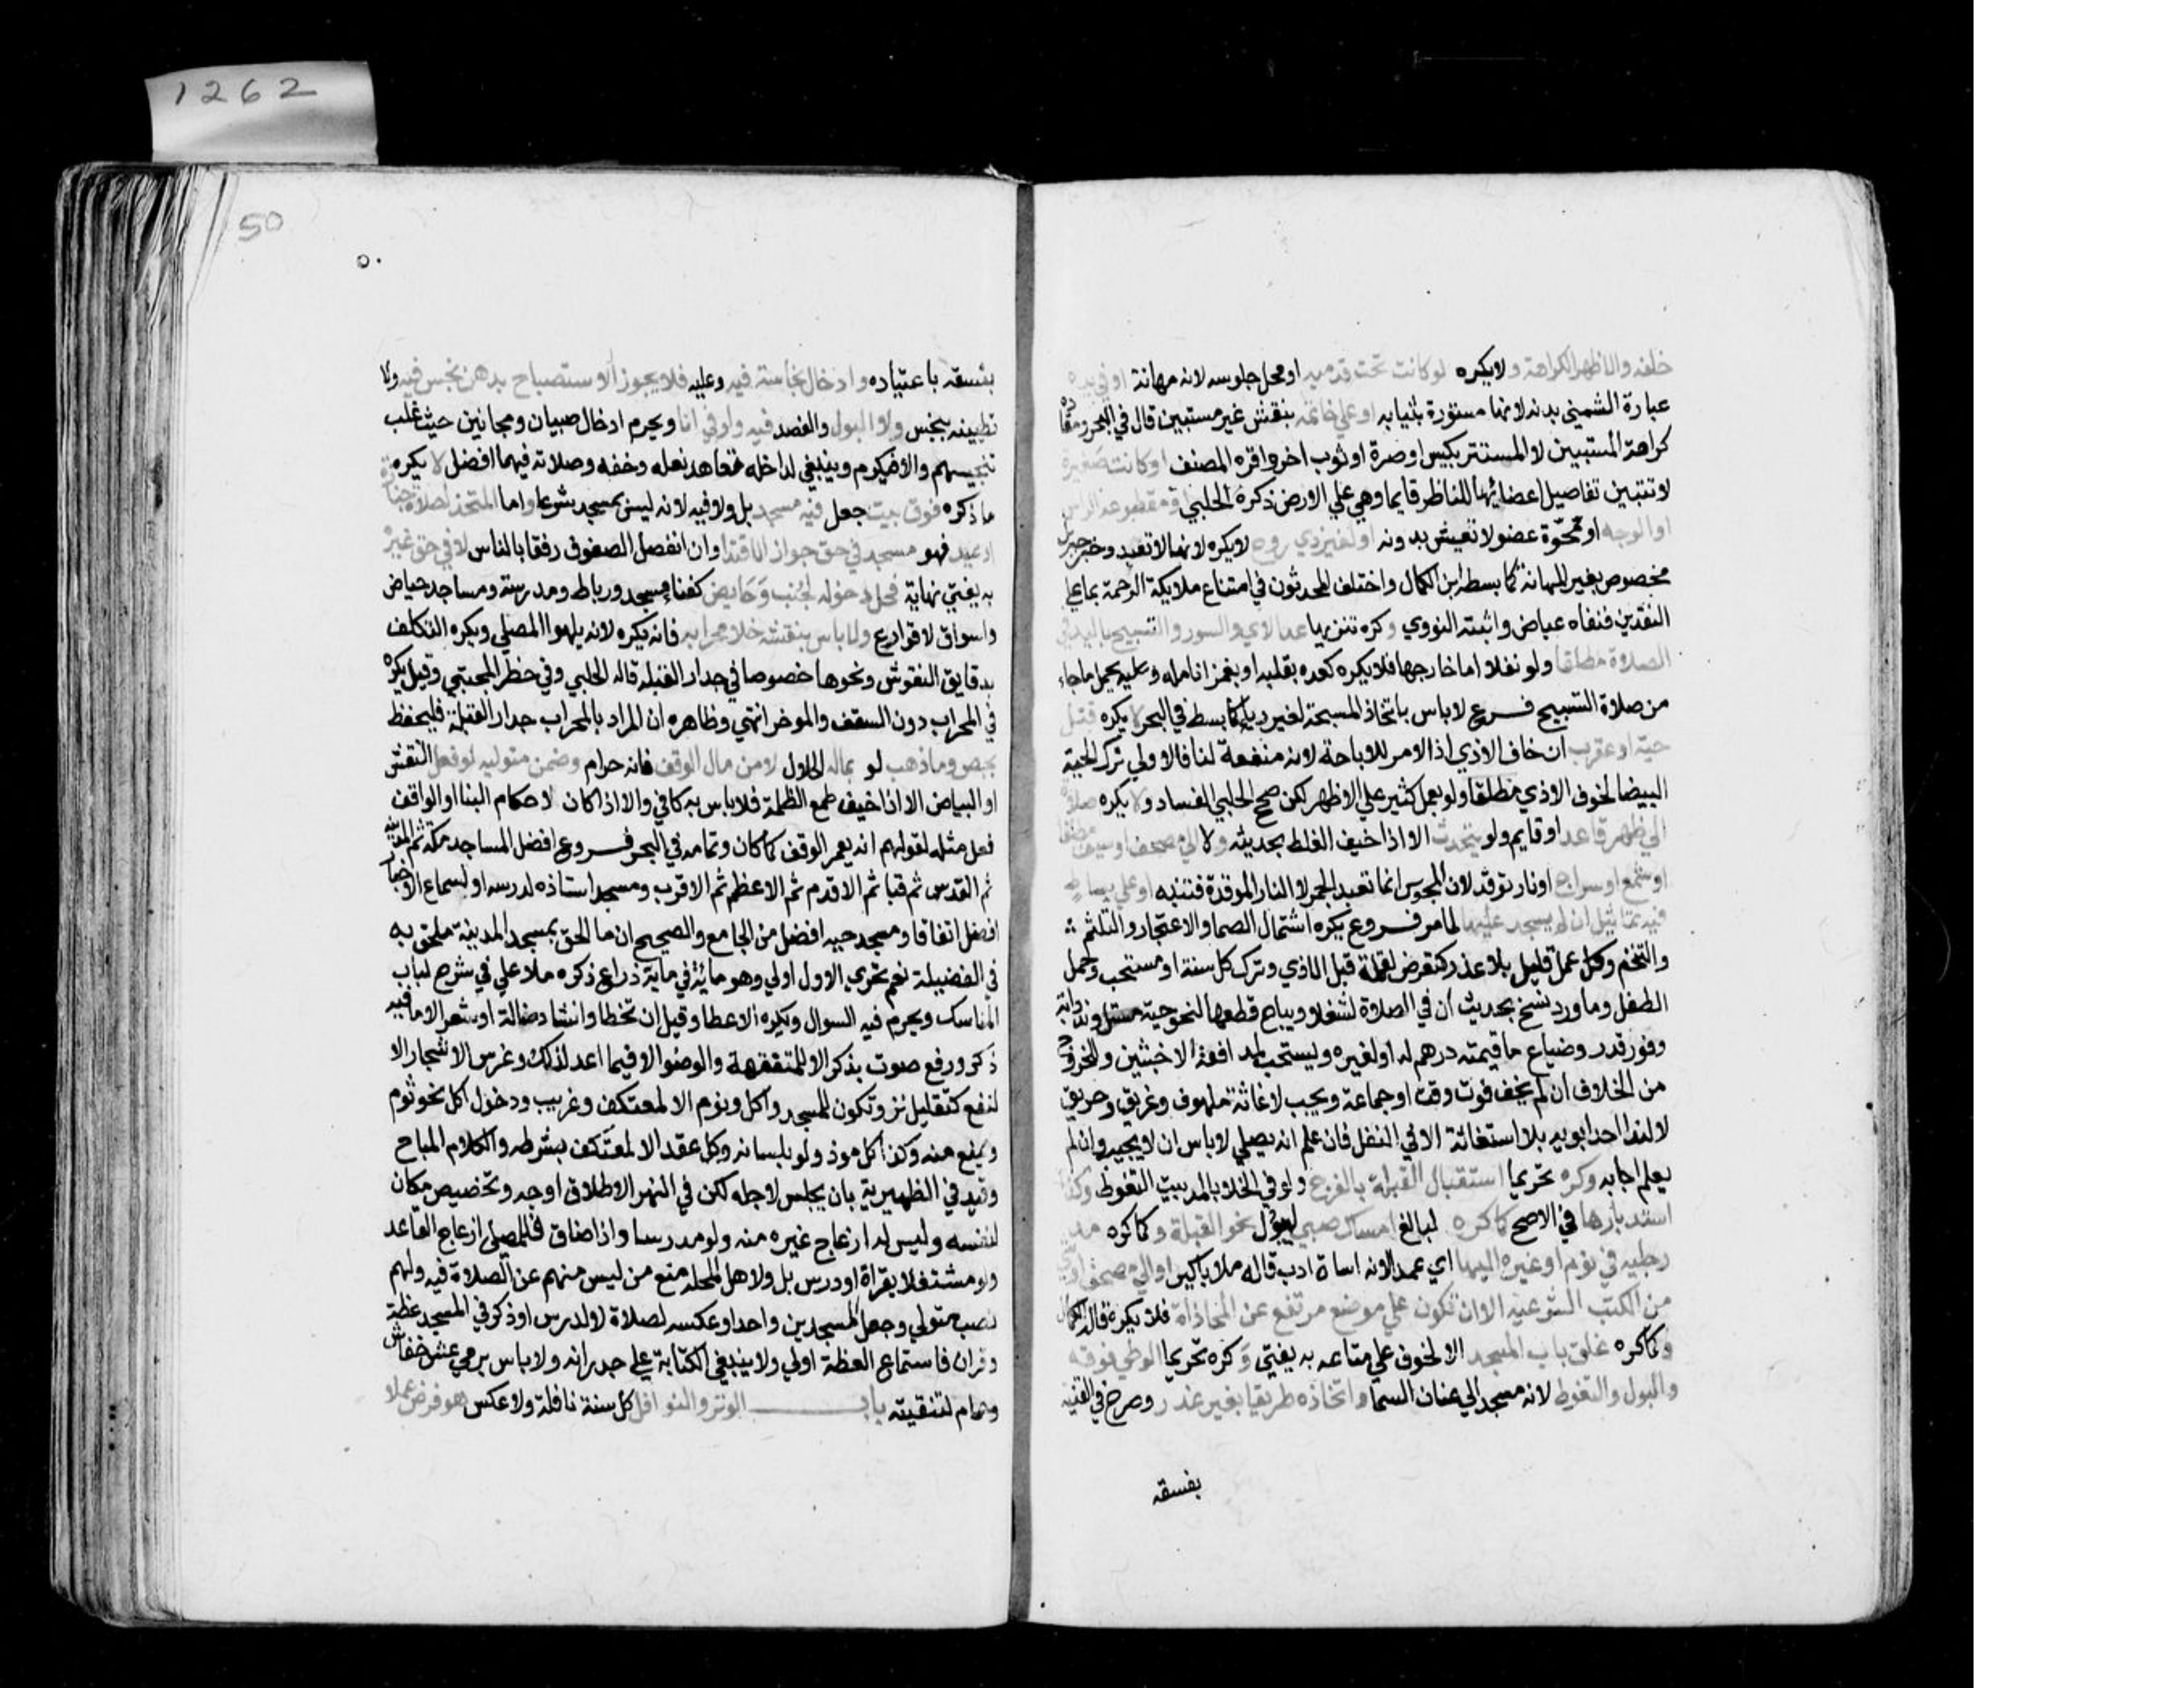 1262
خلفه والاظهر الكراهة ولا يكره لو كانت تحت قدميه او محل جلوسه لانه مهانة او في يده
عبارة الشمني بدنه لانها مستورة بثيابه او علي خاتمه بنقش غير مستبين قال في البحر ومفاده
كراهة المستبين لا المستتر بكيس او صرة او ثوب اخر واقره المصنف او كانت صغيرة
لا تتبين تفاصيل اعضائها للناظر قايما وهي علي الارض ذكره الحلبي او مقطوعة الراس
او الوجه او ممحوة عضو لا تعيش بدونه او لغير ذي روح لا يكره لانها لا تعبد وخبر جبريل
مخصوص بغير المهانة كما بسطه ابن الكمال واختلف المحدثون في امتناع ملايكة الرحمة بما علي
النقدين فنفاه عياض واثبته النووي وكره تنزيها عد الاي والسور والتسبيح باليد في
الصلاة مطلقا ولو نفلا اما خارجها فلا يكره كعده بقلبه او بغمز انامله وعليه يحمل ماجاء
من صلاة التسبيح فروع لا باس باتخاذ المسبحة لغير رياء كما بسط في البحر لا يكره قتل
حية او عقرب ان خاف الاذي اذ الامر للاباحة لانه منفعة لنا فالاولي ترك الحية
البيضا لخوف الاذي مطلقا ولو بعمل كثير علي الاظهر لكن صحح الحلبي الفساد ولا يكره صلاة
الي ظهر قاعد او قايم ولو يتحدث الا اذا خيف الغلط بحديثه ولا الي مصحف او سيف مطلقا
او شمع او سراج او نار توقد لان المجوس انما تعبد الجمر لا النار الموقدة فتنبه او علي بساط
فيه تماثيل ان لم يسجد عليها لما مر فروع يكره اشتمال الصما والاعتجار والتلثم
والتنخم وكل عمل قليل بلا عذر كتعرض لقملة قبل الاذي وترك كل سنة او مستحب وحمل
الطفل وما ورد نسخ بحديث ان في الصلاة لشغلا ويباح قطعها لنحو حية مستل وند دابة
وفور قدر وضياع ما قيمته درهم له او لغيره ويستحب لمدافعة الاخبثين وللخروج
من الخلاف ان لم يخف فوت وقت او جماعة ويجب لاغاثة ملهوف وغريق وحريق
لا لندا احد ابويه بلا استغاثة الا في النفل فان علم انه يصلي لا باس ان لا يجيبه وان لم
يعلم اجابه وكره تحريما استقبال القبلة بالفرج ولو في الخلا بالمد بيت التغوط وكذا
استدبارها في الاصح كما كره لبالغ امساك صبي ليبول نحو القبلة وكما كره مد
رجليه في نوم او غيره اليها اي عمدا لانه اساة ادب قاله ملا باكير او الي مصحف او شي
من الكتب الشرعية الا ان تكون علي موضع مرتفع عن المحاذاة فلا يكره قاله الكمال
وكما كره غلق باب المسجد الا لخوف علي متاعه به يفتي وكره تحريما الوطي فوقه
والبول والتغوط لانه مسجد الي عنان السما واتخاذه طريقا بغير عذر وصرح في القنية
بفسقه
50
٥٠
بفسقه باعتياده وادخال نجاسة فيه وعليه فلا يجوز الاستصباح بدهن نجس فيه ولا
تطيينه بنجس ولا البول والفصد فيه ولو في انا ويحرم ادخال صبيان ومجانين حيث غلب
تنجيسهم والا فيكره وينبغي لداخله تعاهد نعله وخفه وصلاته فيهما افضل لا يكره
ما ذكره فوق بيت جعل فيه مسجد بل ولا فيه لانه ليس بمسجد شرعا واما المتخذ لصلاة جنازة
او عيد فهو مسجد في حق جواز الاقتدا وان انفصل الصفوف رفقا بالناس لا في حق غيره
به يفتي نهاية فحل دخوله لجنب وحايض كفنا مسجد ورباط ومدرسة ومساجد حياض
واسواق لا قوارع ولا باس بنقشه خلا محرابه فانه يكره لانه يلهو المصلي ويكره التكلف
بدقايق النقوش ونحوها خصوصا في جدار القبلة قاله الحلبي وفي حظر المجتبي وقيل يكره
في المحراب دون السقف والموخر انتهي وظاهره ان المراد بالمحراب جدار القبلة فليحفظ
بجص وما ذهب لو بماله الحلال لا من مال الوقف فانه حرام وضمن متوليه لو فعل النقش
او البياض الا اذا خيف طمع الظلمة فلا باس به كافي والا اذا كان لاحكام البنا او الواقف
فعل مثله لقولهم انه يعمر الوقف كما كان وتمامه في البحر فروع افضل المساجد مكة ثم المدينة
ثم القدس ثم قبا ثم الاقدم ثم الاعظم ثم الاقرب ومسجد استاذه لدرسه او لسماع الاخبار
افضل اتفاقا ومسجد حيه افضل من الجامع والصحيح ان ما الحق بمسجد المدينة ملحق به
في الفضيلة نعم تحري الاول اولي وهو ماية في ماية ذراع ذكره ملا علي في شرح لباب
المناسك ويحرم فيه السوال ويكره الاعطا وقيل ان تخطا وانشاد ضالة او شعر الا ما فيه
ذكر ورفع صوت بذكر الا للمتفقهة والوضو الا فيما اعد لذلك وغرس الاشجار الا
لنفع كتقليل نز وتكون للمسجد واكل ونوم الا لمعتكف وغريب ودخول اكل نحو ثوم
ويمنع منه وكذا كل موذ ولو بلسانه وكل عقد الا لمعتكف بشرطه والكلام المباح
وقيد في الظهيرية بان يجلس لاجله لكن في النهر الاطلاق اوجه وتخصيص مكان
لنفسه وليس له ازعاج غيره منه ولو مدرسا واذا ضاق فللمصلي ازعاج القاعد
ولو مشتغلا بقراة او درس بل ولاهل المحله منع من ليس منهم عن الصلاة فيه ولهم
نصب متولي وجعل المسجدين واحدا وعكسه لصلاة لا لدرس او ذكر في المسجد عظة
وقران فاستماع العظة اولي ولا ينبغي الكتابة علي جدرانه ولا باس برمي عش خفاش
وحمام لتنقيته باب الوتر والنوافل كل سنة نافلة ولا عكس هو فرض عملا